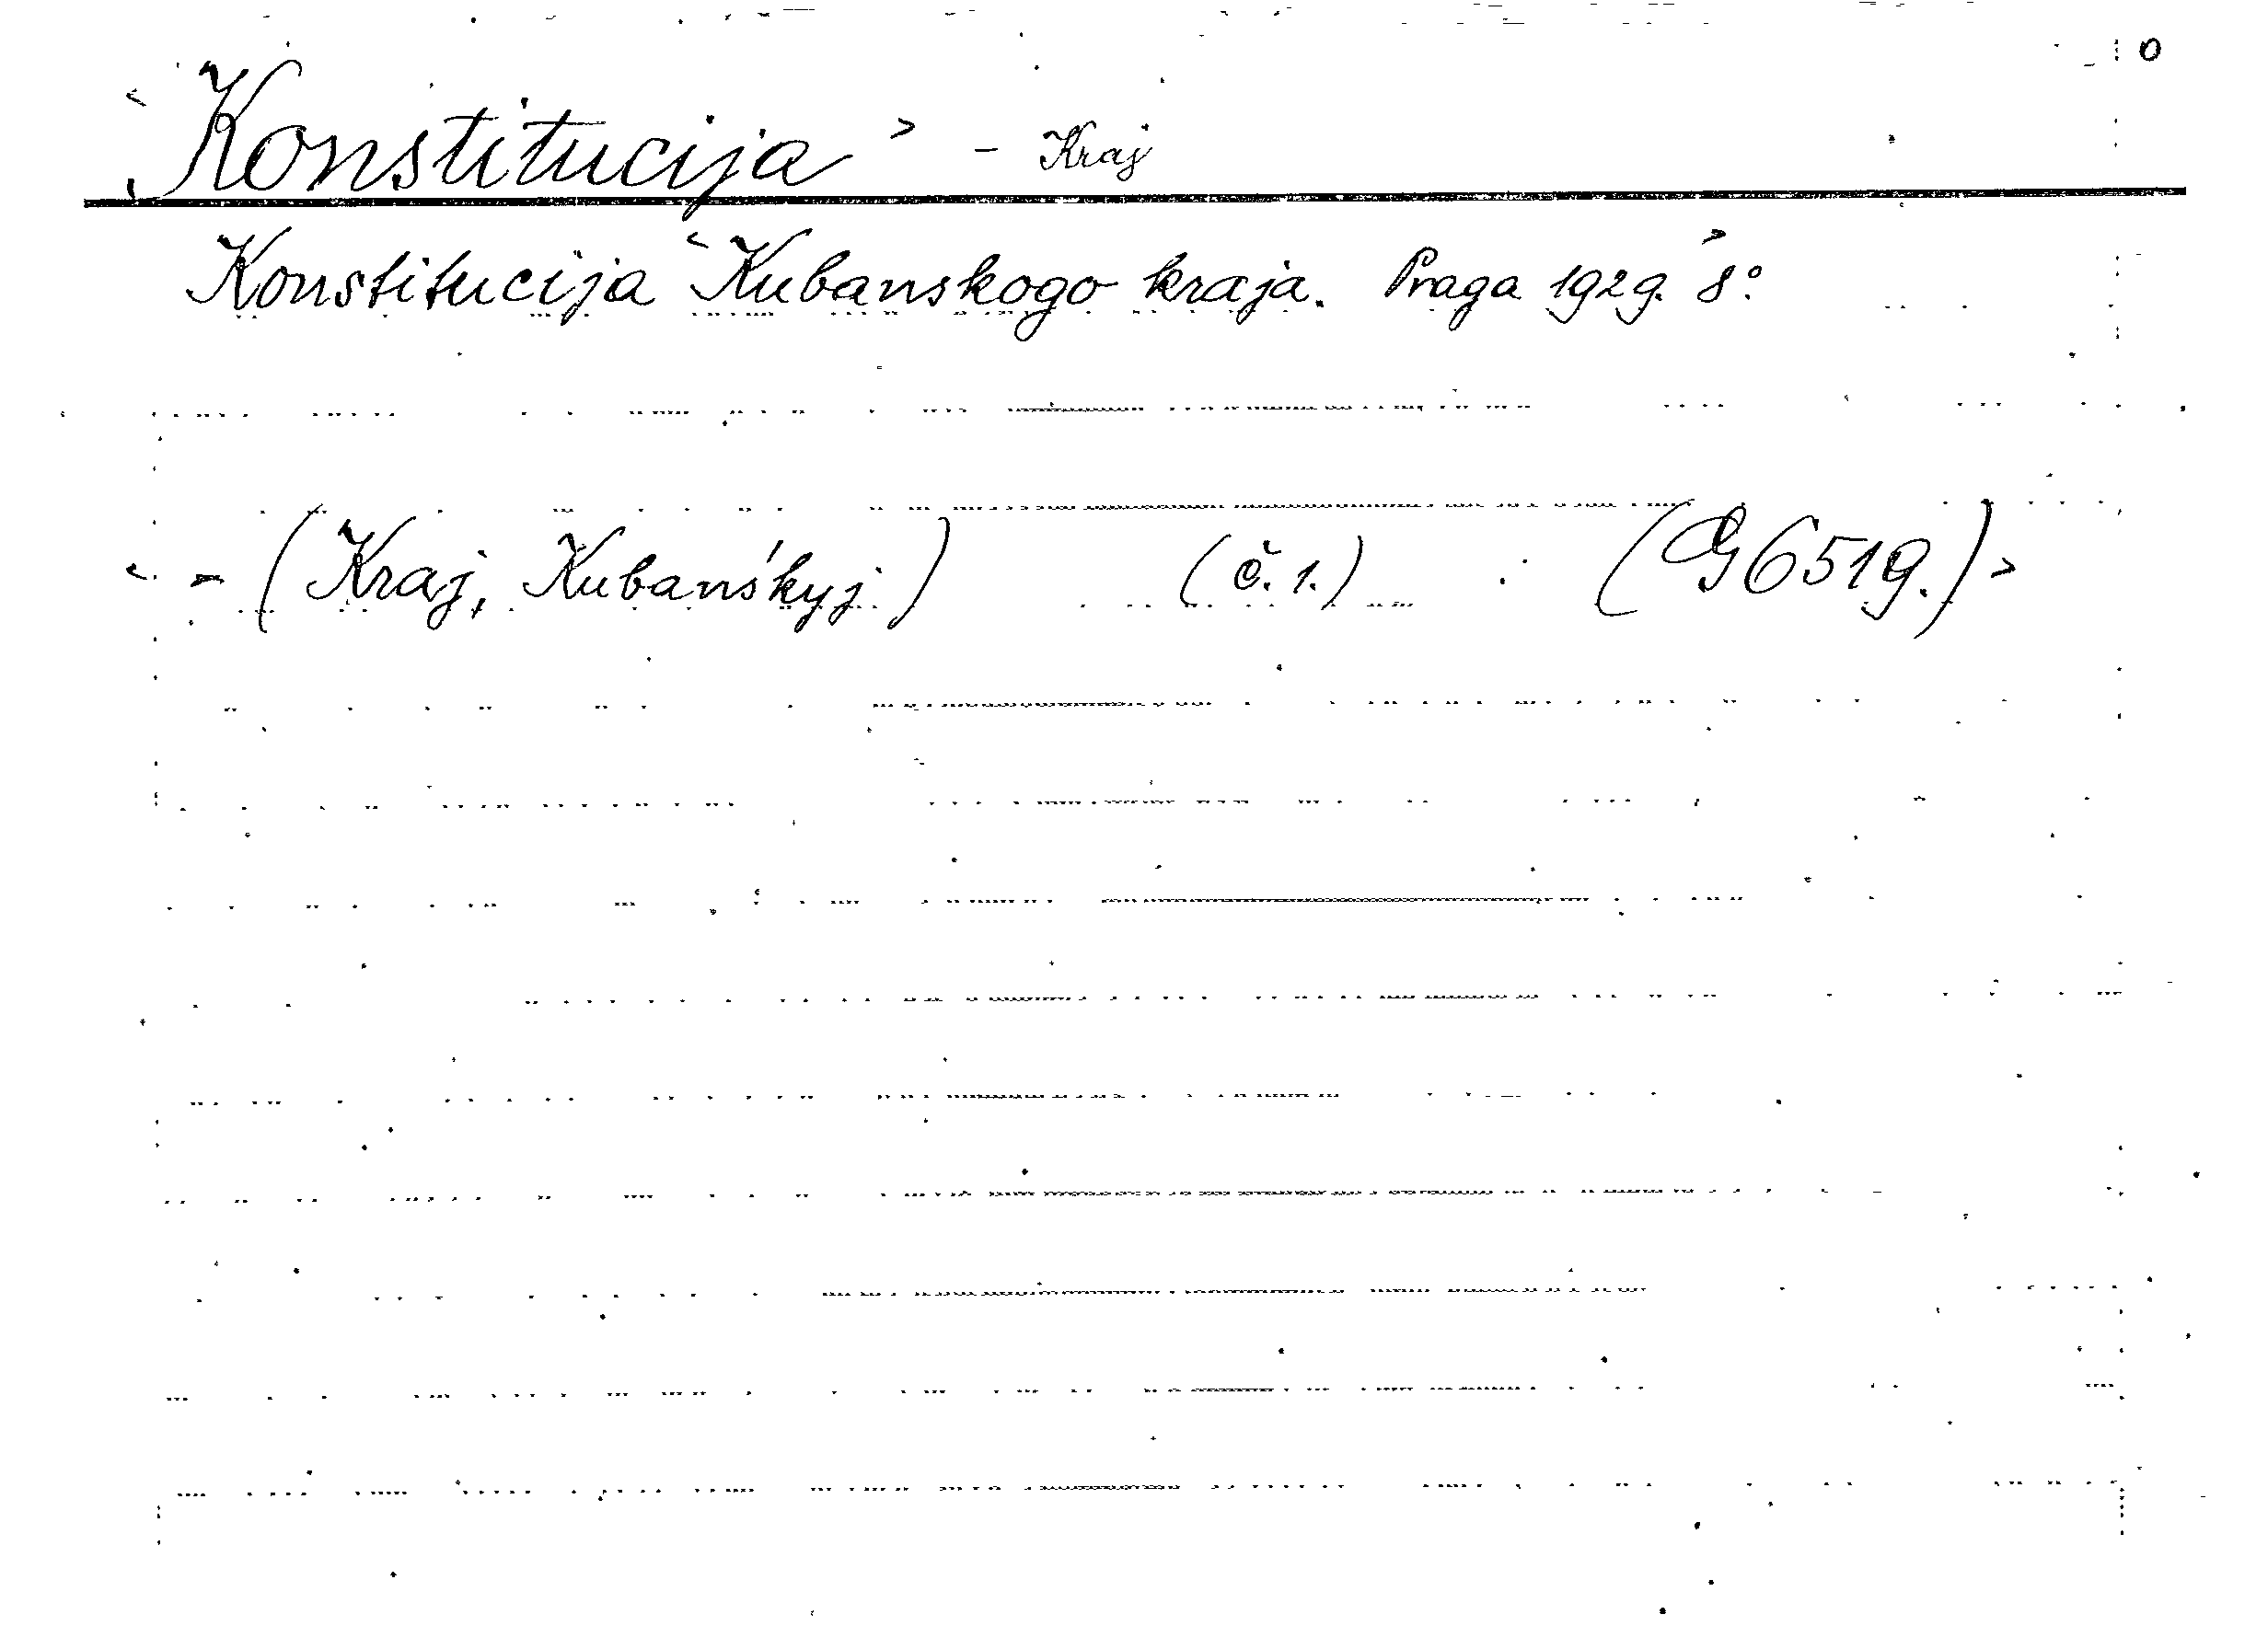 0
<Konstitucija> - Kraj
Konstitucija <Kubanskogo kraja. Praga 1929. 8°>
<- (Kraj, Kubanśkyj.) (č. 1.) (G 6519.)>